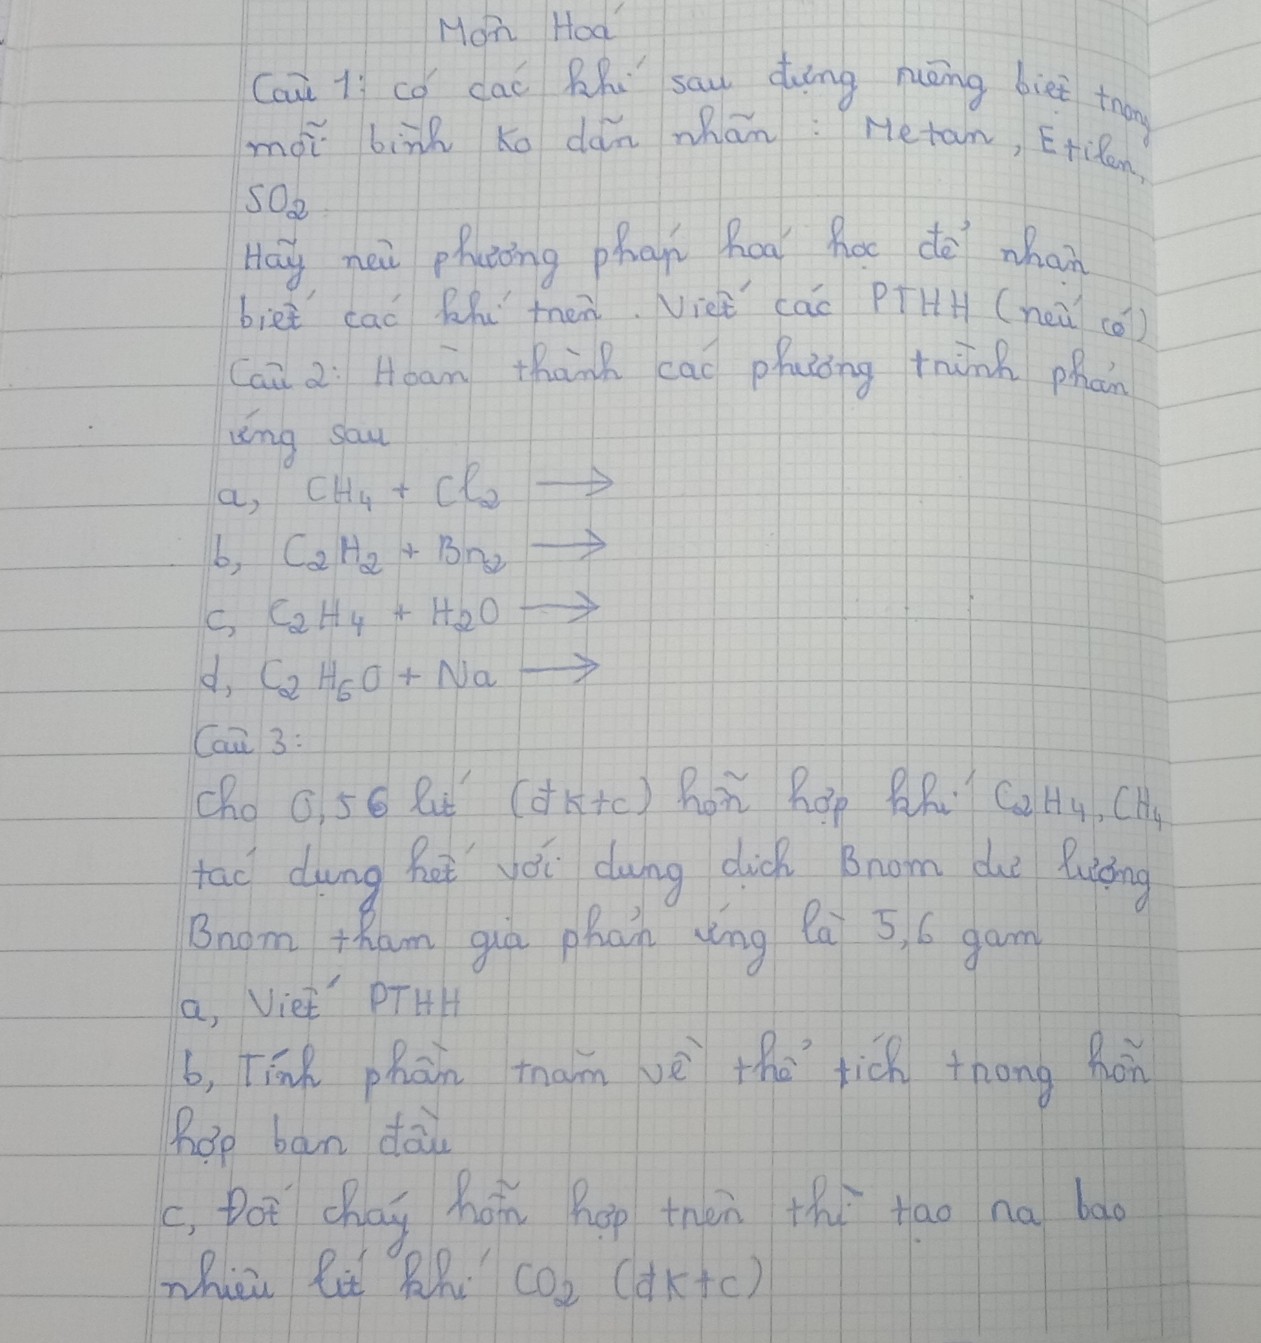 Môn Hoá
Câu 1: có các khí sau đựng riêng biệt trong
mỗi bình ko dãn nhãn : Metan, Etilen,
SO2
Hãy nêu phương pháp hoá học để nhận
biết các khí trên. Viết các PTHH (nếu có)
Câu 2: Hoàn thành các phương trình phản
ứng sau
a, CH4 + Cl2 →
b, C2H2 + Br2 →
c, C2H4 + H2O →
d, C2H6O + Na →
Câu 3:
Cho 0,56 lít (đktc) hỗn hợp khí C2H4, CH4
tác dụng hết với dung dịch Brom dư lượng
Brom tham gia phản ứng là 5,6 gam
a, Viết PTHH
b, Tính phần trăm về thể tích trong hỗn
hợp ban đầu
c, Đốt cháy hỗn hợp trên thì tạo ra bao
nhiêu lít khí CO2 (đktc)